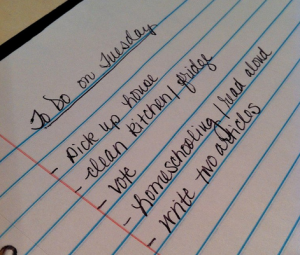 To Do on Tuesday
- Pick up house
- clean kitchen/fridge
- vote
- homeschooling/read aloud
- write two articles